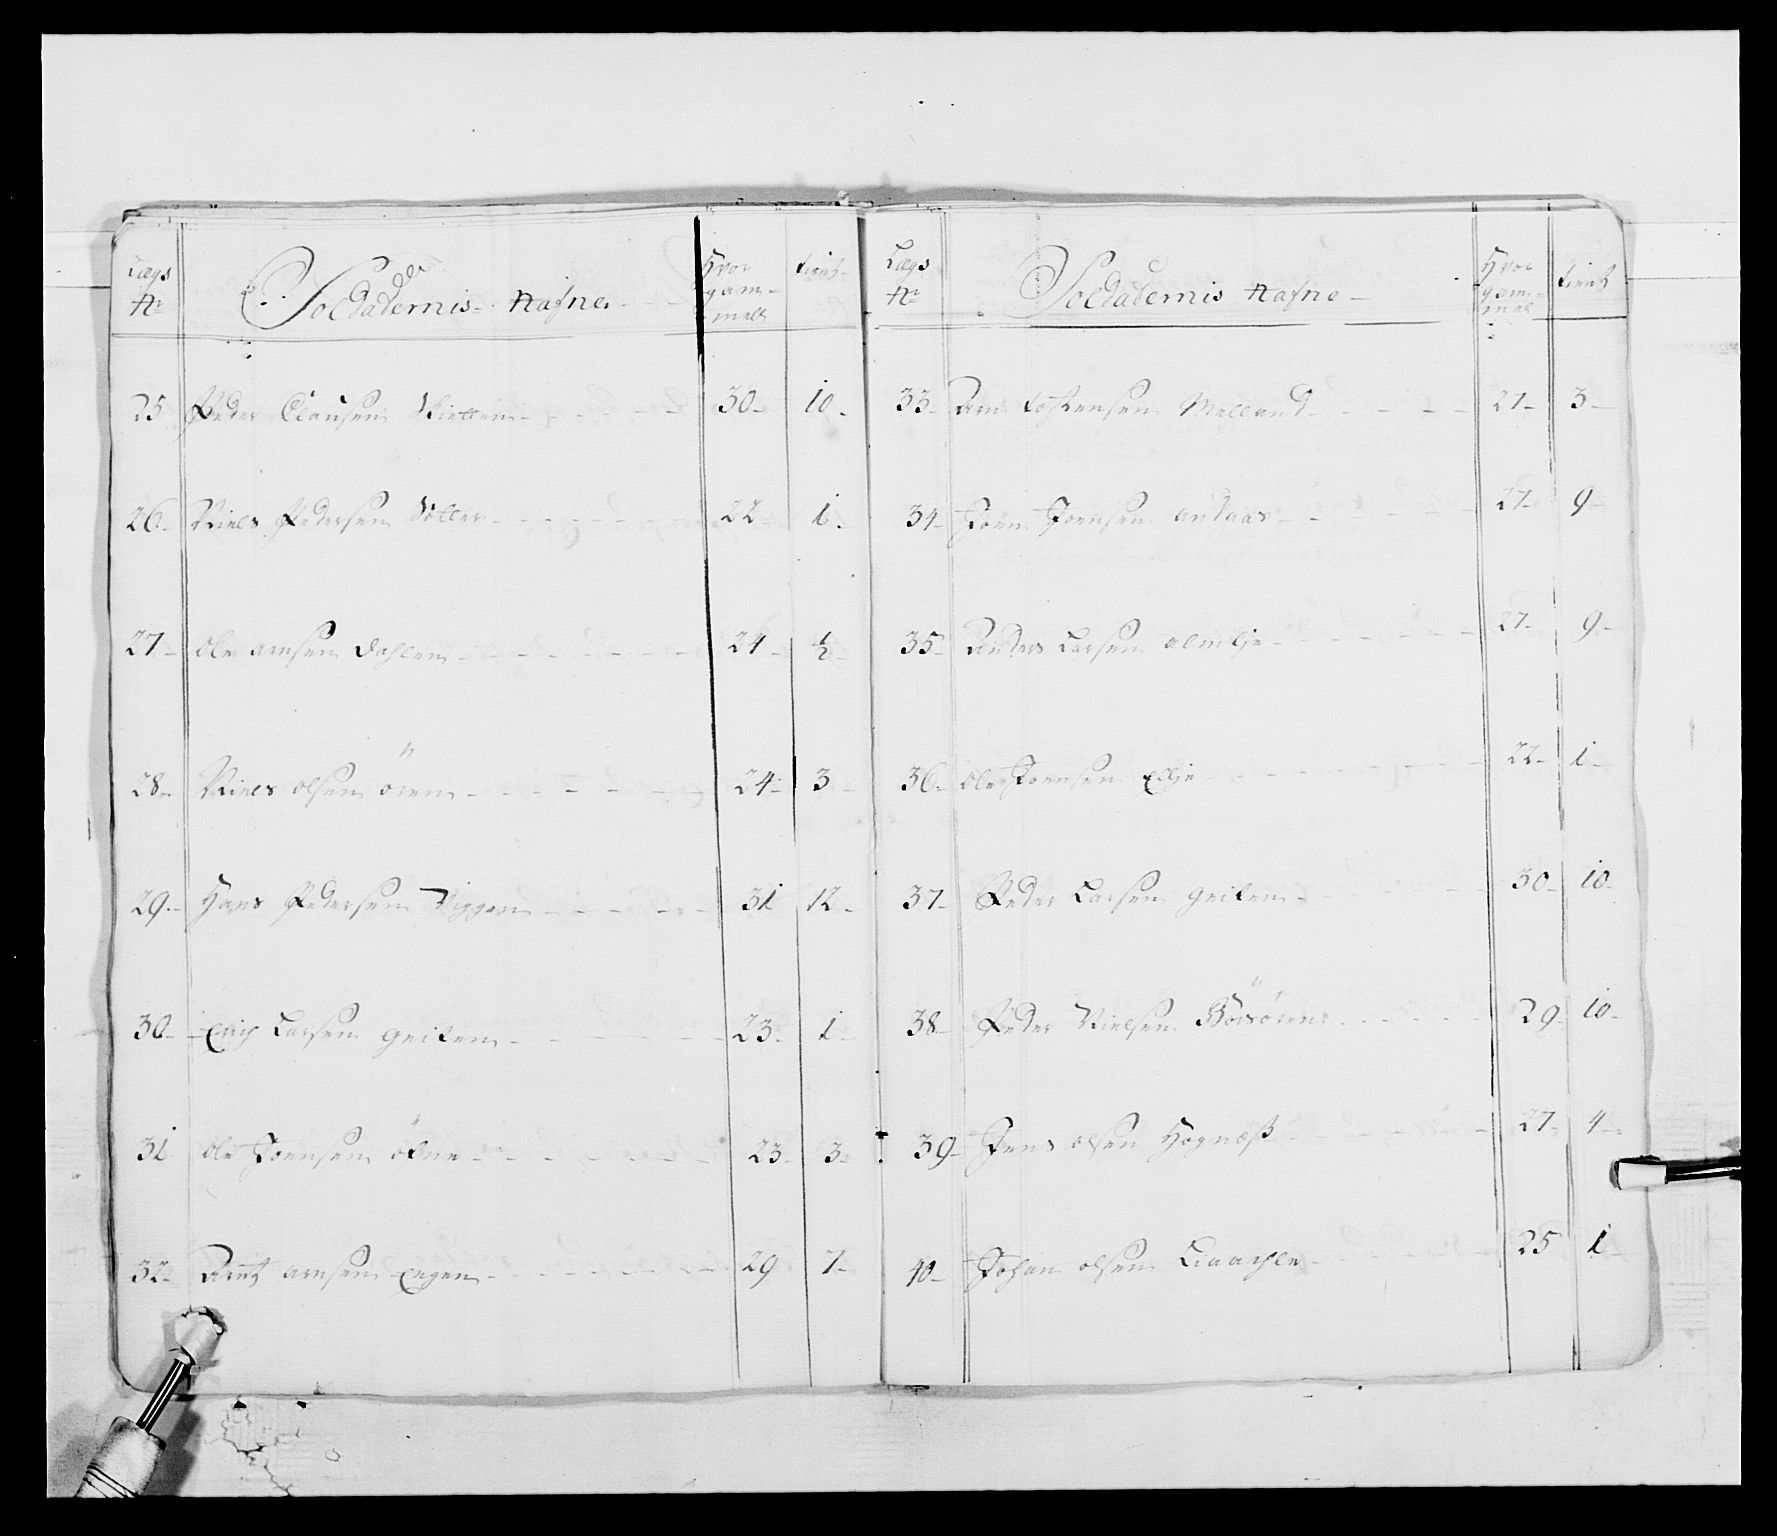 Lægs No Soldadernis Nafne Hvor gammell tient
25 Peder Clausen 30 10
26 Niels Pedersen 22 1
27 Ole arnsen dahlen 24 ½
28 Niels olsen ören 24 3
29 Hans Pedersen Viggen 31 12
30 Erich Larsen geilen 23 1
31 Ole Joensen 23 3
32 Arnt arnsen Engen 29 7
Lægs No Soldadernis Nafne Hvor gammel tient
33 Arn tostensen Melland 27 3
34 Joen Joensen andaas 27 9
35 Anders Larsen 27 9
36 ole Joensen 22 1
37 Peder Larsen geilen 30 10
38 Peder Nielsen Börsören 29 10
39 Jens olsen Hognæss 27 4
40 Johan olsen 25 1